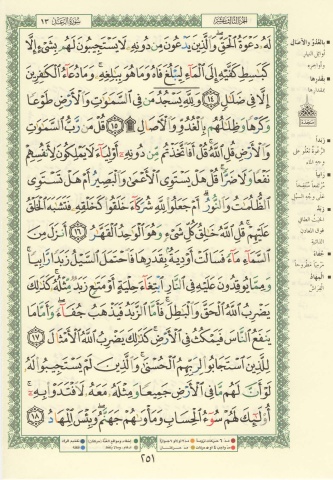 سورة الرعد ١٣
لَهُۥ دَعْوَةُ ٱلْحَقِّ وَٱلَّذِينَ يَدْعُونَ مِن دُونِهِۦ لَا يَسْتَجِيبُونَ لَهُم بِشَىْءٍ إِلَّا
كَبَٰسِطِ كَفَّيْهِ إِلَى ٱلْمَآءِ لِيَبْلُغَ فَاهُ وَمَا هُوَ بِبَٰلِغِهِۦ وَمَا دُعَآءُ ٱلْكَٰفِرِينَ
إِلَّا فِى ضَلَٰلٍ ١٤ وَلِلَّهِ يَسْجُدُ مَن فِى ٱلسَّمَٰوَٰتِ وَٱلْأَرْضِ طَوْعًا
وَكَرْهًا وَظِلَٰلُهُم بِٱلْغُدُوِّ وَٱلْءَاصَالِ ۩ ١٥ قُلْ مَن رَّبُّ ٱلسَّمَٰوَٰتِ
وَٱلْأَرْضِ قُلِ ٱللَّهُ قُلْ أَفَٱتَّخَذْتُم مِّن دُونِهِۦٓ أَوْلِيَآءَ لَا يَمْلِكُونَ لِأَنفُسِهِمْ
نَفْعًا وَلَا ضَرًّا قُلْ هَلْ يَسْتَوِى ٱلْأَعْمَىٰ وَٱلْبَصِيرُ أَمْ هَلْ تَسْتَوِى
ٱلظُّلُمَٰتُ وَٱلنُّورُ أَمْ جَعَلُوا۟ لِلَّهِ شُرَكَآءَ خَلَقُوا۟ كَخَلْقِهِۦ فَتَشَٰبَهَ ٱلْخَلْقُ
عَلَيْهِمْ قُلِ ٱللَّهُ خَٰلِقُ كُلِّ شَىْءٍ وَهُوَ ٱلْوَٰحِدُ ٱلْقَهَّٰرُ ١٦ أَنزَلَ مِنَ
ٱلسَّمَآءِ مَآءً فَسَالَتْ أَوْدِيَةٌۢ بِقَدَرِهَا فَٱحْتَمَلَ ٱلسَّيْلُ زَبَدًا رَّابِيًا
وَمِمَّا يُوقِدُونَ عَلَيْهِ فِى ٱلنَّارِ ٱبْتِغَآءَ حِلْيَةٍ أَوْ مَتَٰعٍ زَبَدٌ مِّثْلُهُۥ كَذَٰلِكَ
يَضْرِبُ ٱللَّهُ ٱلْحَقَّ وَٱلْبَٰطِلَ فَأَمَّا ٱلزَّبَدُ فَيَذْهَبُ جُفَآءً وَأَمَّا مَا
يَنفَعُ ٱلنَّاسَ فَيَمْكُثُ فِى ٱلْأَرْضِ كَذَٰلِكَ يَضْرِبُ ٱللَّهُ ٱلْأَمْثَالَ ١٧
لِلَّذِينَ ٱسْتَجَابُوا۟ لِرَبِّهِمُ ٱلْحُسْنَىٰ وَٱلَّذِينَ لَمْ يَسْتَجِيبُوا۟ لَهُۥ
لَوْ أَنَّ لَهُم مَّا فِى ٱلْأَرْضِ جَمِيعًا وَمِثْلَهُۥ مَعَهُۥ لَٱفْتَدَوْا۟ بِهِۦٓ
أُو۟لَٰٓئِكَ لَهُمْ سُوٓءُ ٱلْحِسَابِ وَمَأْوَىٰهُمْ جَهَنَّمُ وَبِئْسَ ٱلْمِهَادُ ١٨
بالغدو والآصال
بقدرها
بمقدارها
زبدا
رابيا
زبد
جفاء
المهاد
الفراش
٢٥١